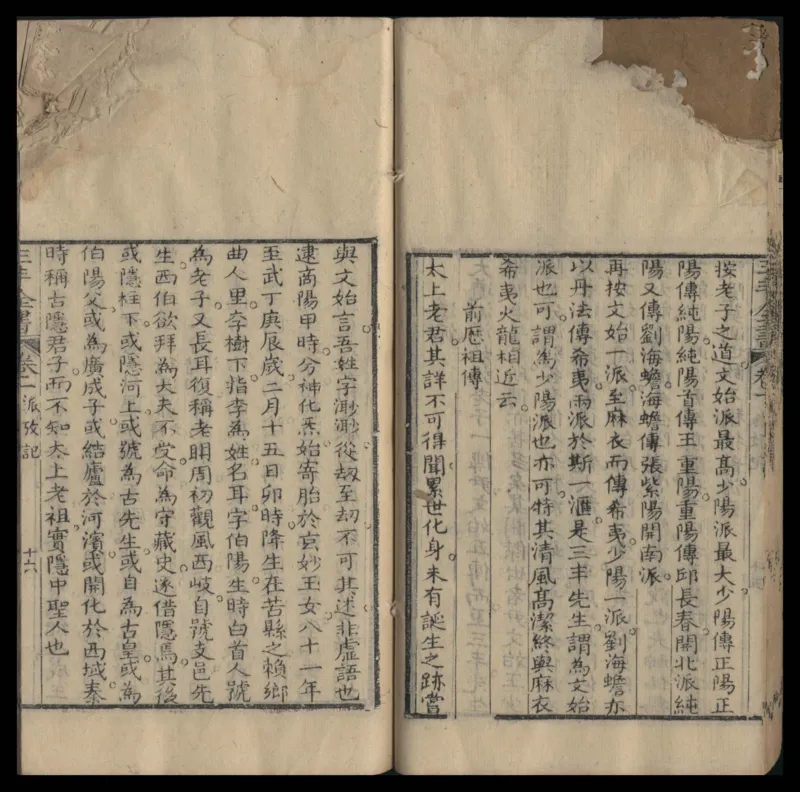 三丰全書 卷一
按老子之道。文始派最高。少陽派最大。少陽傳正陽。正
陽傳純陽。純陽首傳王重陽。重陽傳邱長春。開北派。純
陽又傳劉海蟾。海蟾傳張紫陽。開南派。
再按文始一派。至麻衣而傳希夷。少陽一派。劉海蟾亦
以丹法傳希夷。兩派於斯一滙。是三丰先生。謂為文始
派也可。謂為少陽派也亦可。特其清風高潔。終與麻衣
希夷火龍相近云。
前歷祖傳
太上老君。其詳不可得聞。累世化身。未有誕生之跡。嘗
與文始言。吾姓字渺渺。從劫至劫。不可具述。非虛語也。
逮商陽甲時。分神化炁。始寄胎於玄妙王女八十一年。
至武丁庚辰歲二月十五日卯時降生。在苦縣之賴鄉
曲人里李樹下。指李為姓。名耳字伯陽。生時白首。人號
為老子。又長耳。復稱老耼。周初觀風西岐。自號支邑先
生。西伯欲拜為大夫。不受。命為守藏史。遂借隱焉。其後
或隱柱下。或隱河上。或號為古先生。或自為古皇。或為
伯陽父。或為廣成子。或結廬於河濱。或開化於西域。秦
時稱古隱君子。而不知太上老祖。實隱中聖人也
三丰全書 卷一 派攷記 十六